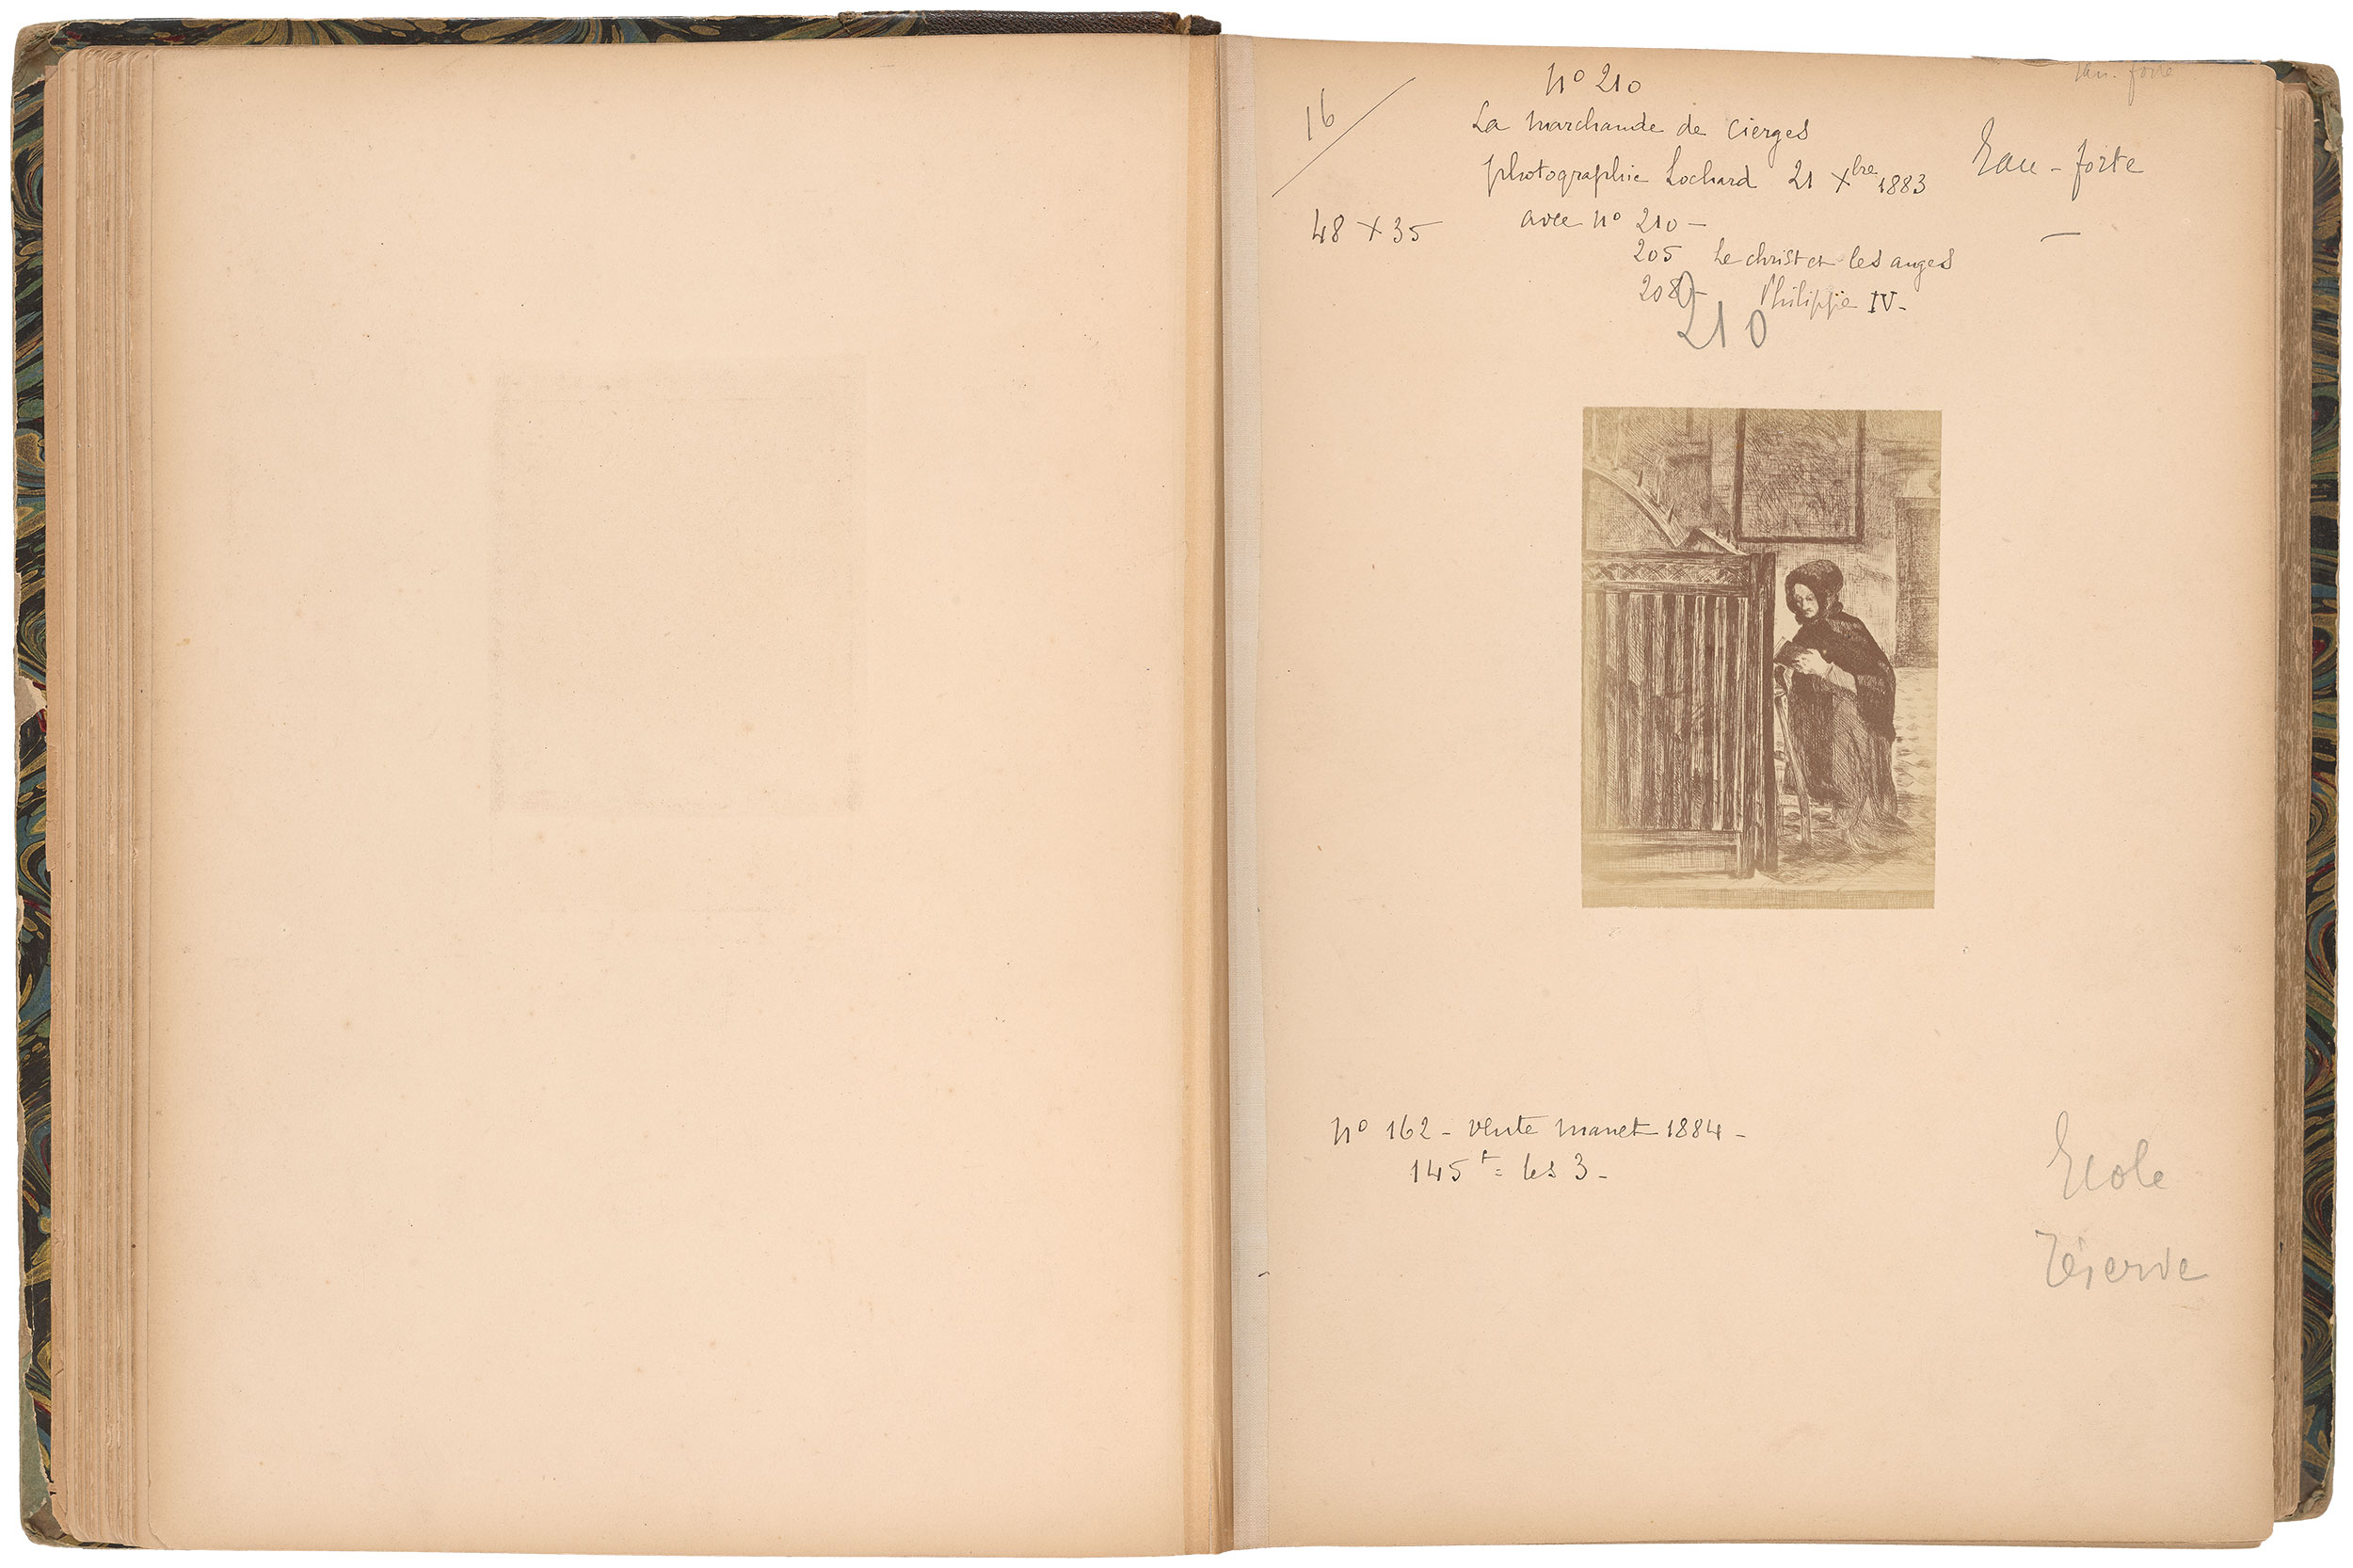 16
n° 210
La marchande de cierges
photographie Lochard 21 Xbre 1883
Eau-forte
48 x 35
avec n° 210 —
205 Le christ et les anges
208 — Philippe IV —
210
n° 162 — vente manet 1884 —
145 f = les 3 —
Ecole
réserve